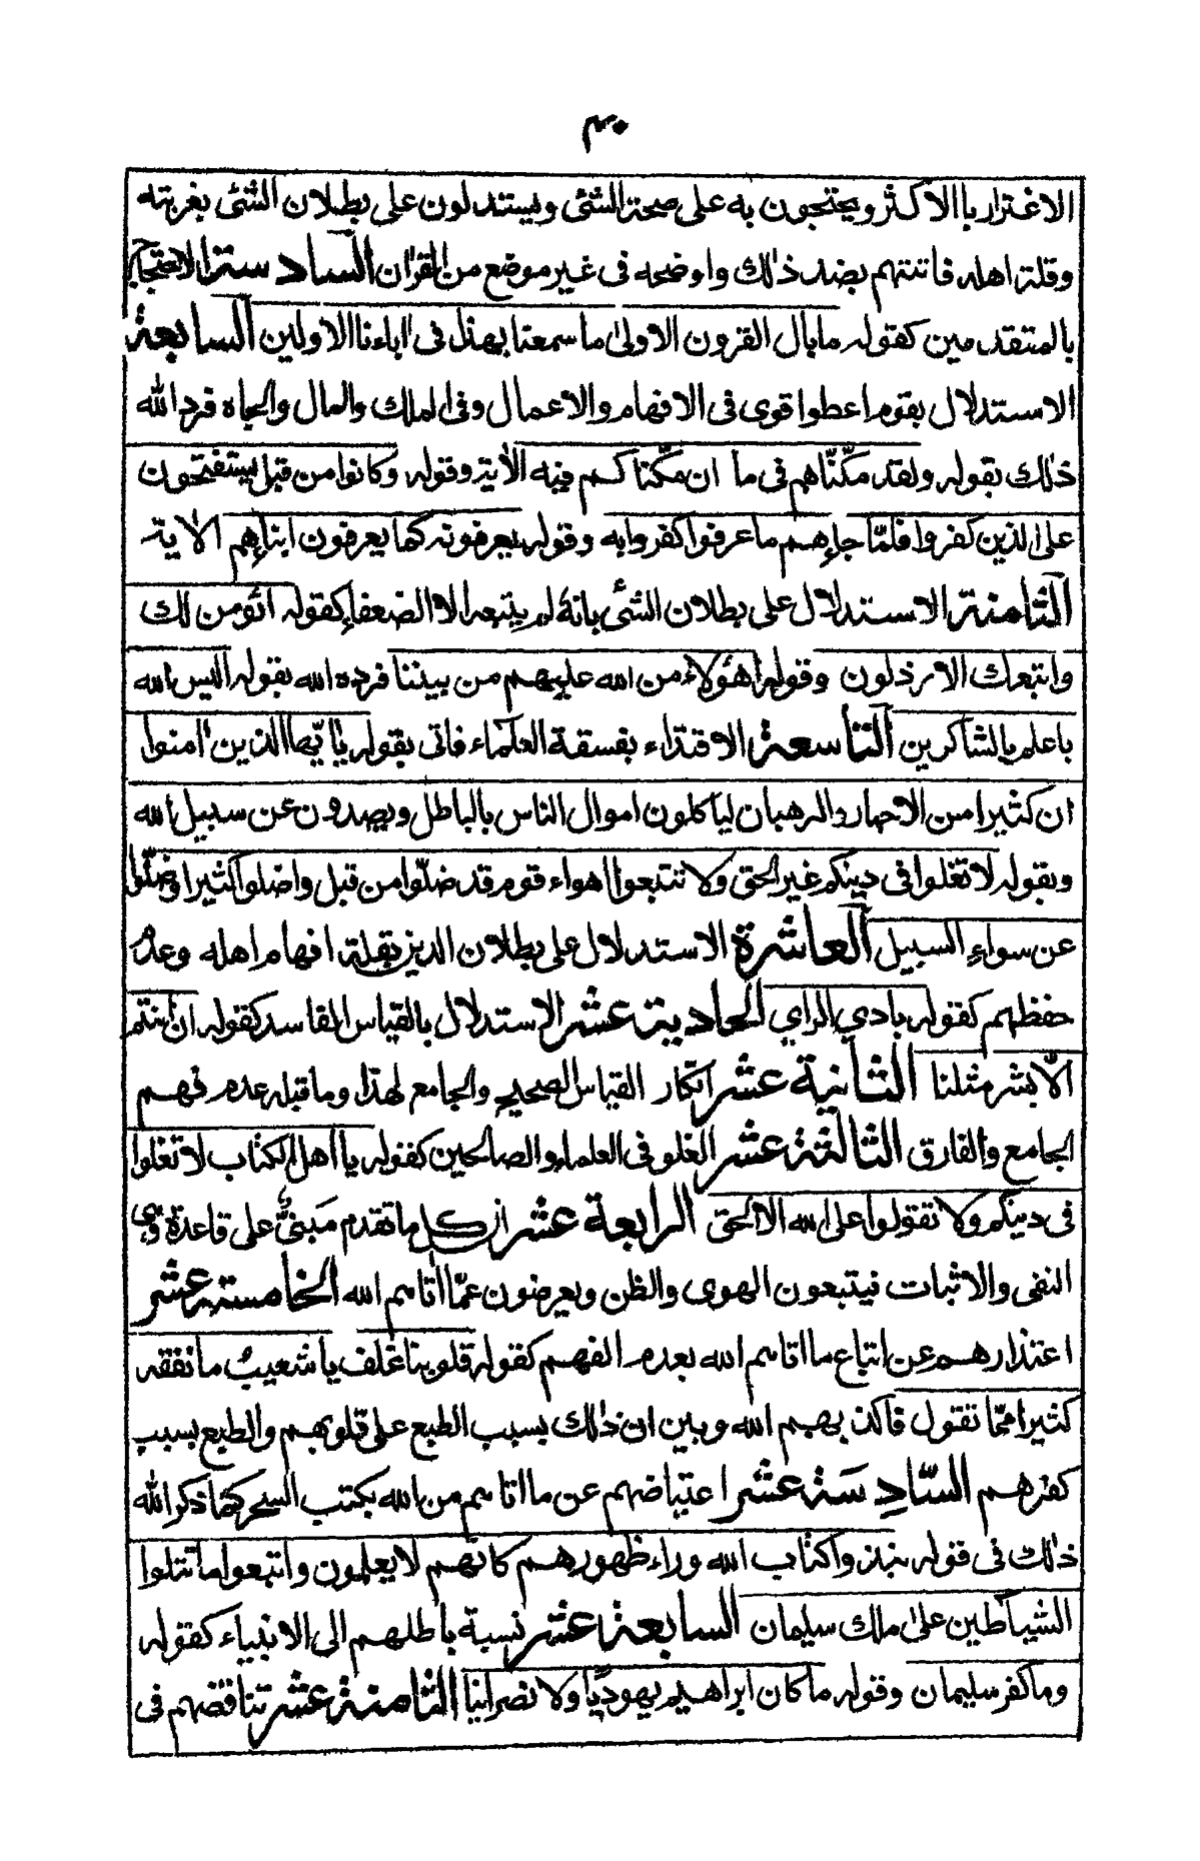 ۳۰
الاغترار باالاكثر ويحتجون به على صحة الشئ ويستدلون على بطلان الشئ بغربته
وقلة اهله فاتتهم بضد ذالك واوضحه فى غير موضع من القران السادسة الاحتجاج
بالمتقدمين كقوله ما بال القرون الاولى ما سمعنا بهذا فى اباءنا الاولين السابعة
الاستدلال بقوم اعطوا قوى فى الافهام والاعمال وفى الملك والمال والجاه فرد الله
ذلك بقوله ولقد مكّنّاهم فى ما ان مكّنّاكم فيه الاية وقوله وكانوا من قبل يستفتحون
على الذين كفروا فلمّا جاءهم ما عرفوا كفروا به وقوله يعرفونه كما يعرفون ابناءهم الاية
الثامنة الاستدلال على بطلان الشئ بانه لم يتبعه الا الضعفاء كقوله انؤمن لك
واتبعك الارذلون وقوله اهؤلاء من الله عليهم من بيننا فرده الله بقوله اليس الله
باعلم بالشاكرين التاسعة الاقتداء بفسقة العلماء فاتى بقوله يا ايّها الذين امنوا
ان كثيرا من الاحبار والرهبان لياكلون اموال الناس بالباطل ويصدون عن سبيل الله
وبقوله لا تغلوا فى دينكم غير الحق ولا تتبعوا اهواء قوم قد ضلّوا من قبل واضلوا كثيرا وضلّوا
عن سواء السبيل العاشرة الاستدلال على بطلان الدين بقلة افهام اهله وعدم
حفظهم كقوله بادي الراي الحادية عشر الاستدلال بالقياس الفاسد كقوله ان انتم
الّا بشر مثلنا الثانية عشر انكار القياس الصحيح والجامع لهذا وما قبله عدم فهم
الجامع والفارق الثالثة عشر الغلو فى العلماء والصالحين كقوله يا اهل الكتاب لا تغلوا
فى دينكم ولا تقولوا على الله الا الحق الرابعة عشر ان كل ما تقدم مبنيٌّ على قاعدة وهى
النفى والاثبات فيتبعون الهوى والظن ويعرضون عمّا اتاهم الله الخامسة عشر
اعتذارهم عن اتباع ما اتاهم الله بعدم الفهم كقوله قلوبنا غلف يا شعيب ما نفقه
كثيرا ممّا تقول فاكذبهم الله وبين ان ذلك بسبب الطبع على قلوبهم والطبع بسبب
كفرهم السّادسة عشر اعتياضهم عن ما اتاهم من الله بكتب السحر كما ذكر الله
ذلك فى قوله نبذوا كتاب الله وراء ظهورهم كانهم لا يعلمون واتبعوا ما تتلوا
الشياطين على ملك سليمان السابعة عشر نسبة باطلهم الى الانبياء كقوله
وما كفر سليمان وقوله ما كان ابراهيم يهوديّا ولا نصرانيا الثامنة عشر تناقضهم فى